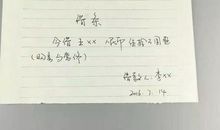 借条
今借王XX 人民币伍拾万圆整
借款人:李XX
2016.7.14